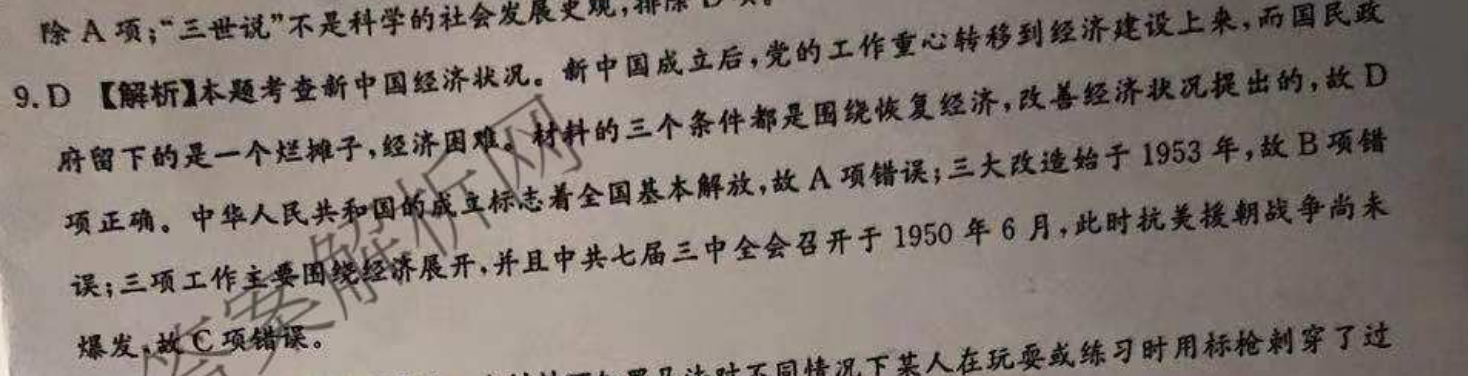 除 A 项;“三世说”不是科学的社会发展史观,排除 D
9. D 【解析】本题考查新中国经济状况。新中国成立后,党的工作重心转移到经济建设上来,而国民政
府留下的是一个烂摊子,经济困难。材料的三个条件都是围绕恢复经济,改善经济状况提出的,故 D
项正确。中华人民共和国的成立标志着全国基本解放,故 A 项错误;三大改造始于 1953 年,故 B 项错
误;三项工作主要围绕经济展开,并且中共七届三中全会召开于 1950 年 6 月,此时抗美援朝战争尚未
爆发,故 C 项错误。
不同情况下某人在玩耍或练习时用标枪刺穿了过
答案解析网